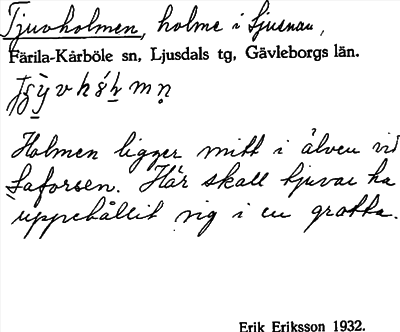 Tjuvholmen, holme i Ljusnan,
Färila-Kårböle sn, Ljusdals tg, Gävleborgs län.
Holmen ligger mitt i älven vid
Laforsen. Här skall tjuvar ha
uppehållit sig i en grotta.
Erik Eriksson 1932.